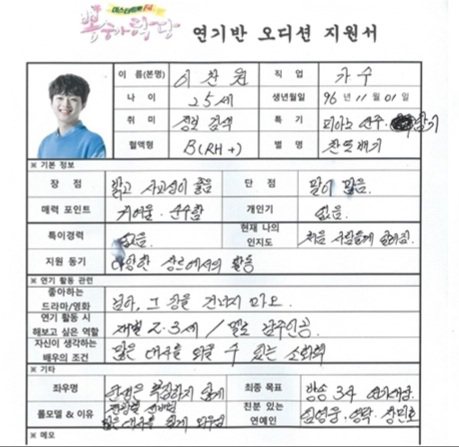 미스터트롯 F4
뽕숭아학당 연기반 오디션 지원서
이 름(본명) 이찬원 직 업 가수
나 이 25세 생년월일 96년 11월 01일
취 미 정보 검색 특 기 피아노 연주,
혈액형 B(RH+) 별 명 찬또배기
※ 기본 정보
장 점 밝고 사교성이 좋음 단 점 말이 많음.
매력 포인트 귀여움. 순수함 개인기 없음.
특이경력 없음. 현재 나의 인지도
지원 동기 다양한 장르에서의 활동
※ 연기 활동 관련
좋아하는 드라마/영화 님아, 그 강을 건너지 마오.
연기 활동 시 해보고 싶은 역할 재벌 2·3세 / 멜로 남주인공
자신이 생각하는 배우의 조건 많은 대사를 외울 수 있는
※ 기타
좌우명 최종 목표 방송 3사 연예대상
롤모델 & 이유 친분 있는 연예인 임영웅·영탁·장민호
※ 메모